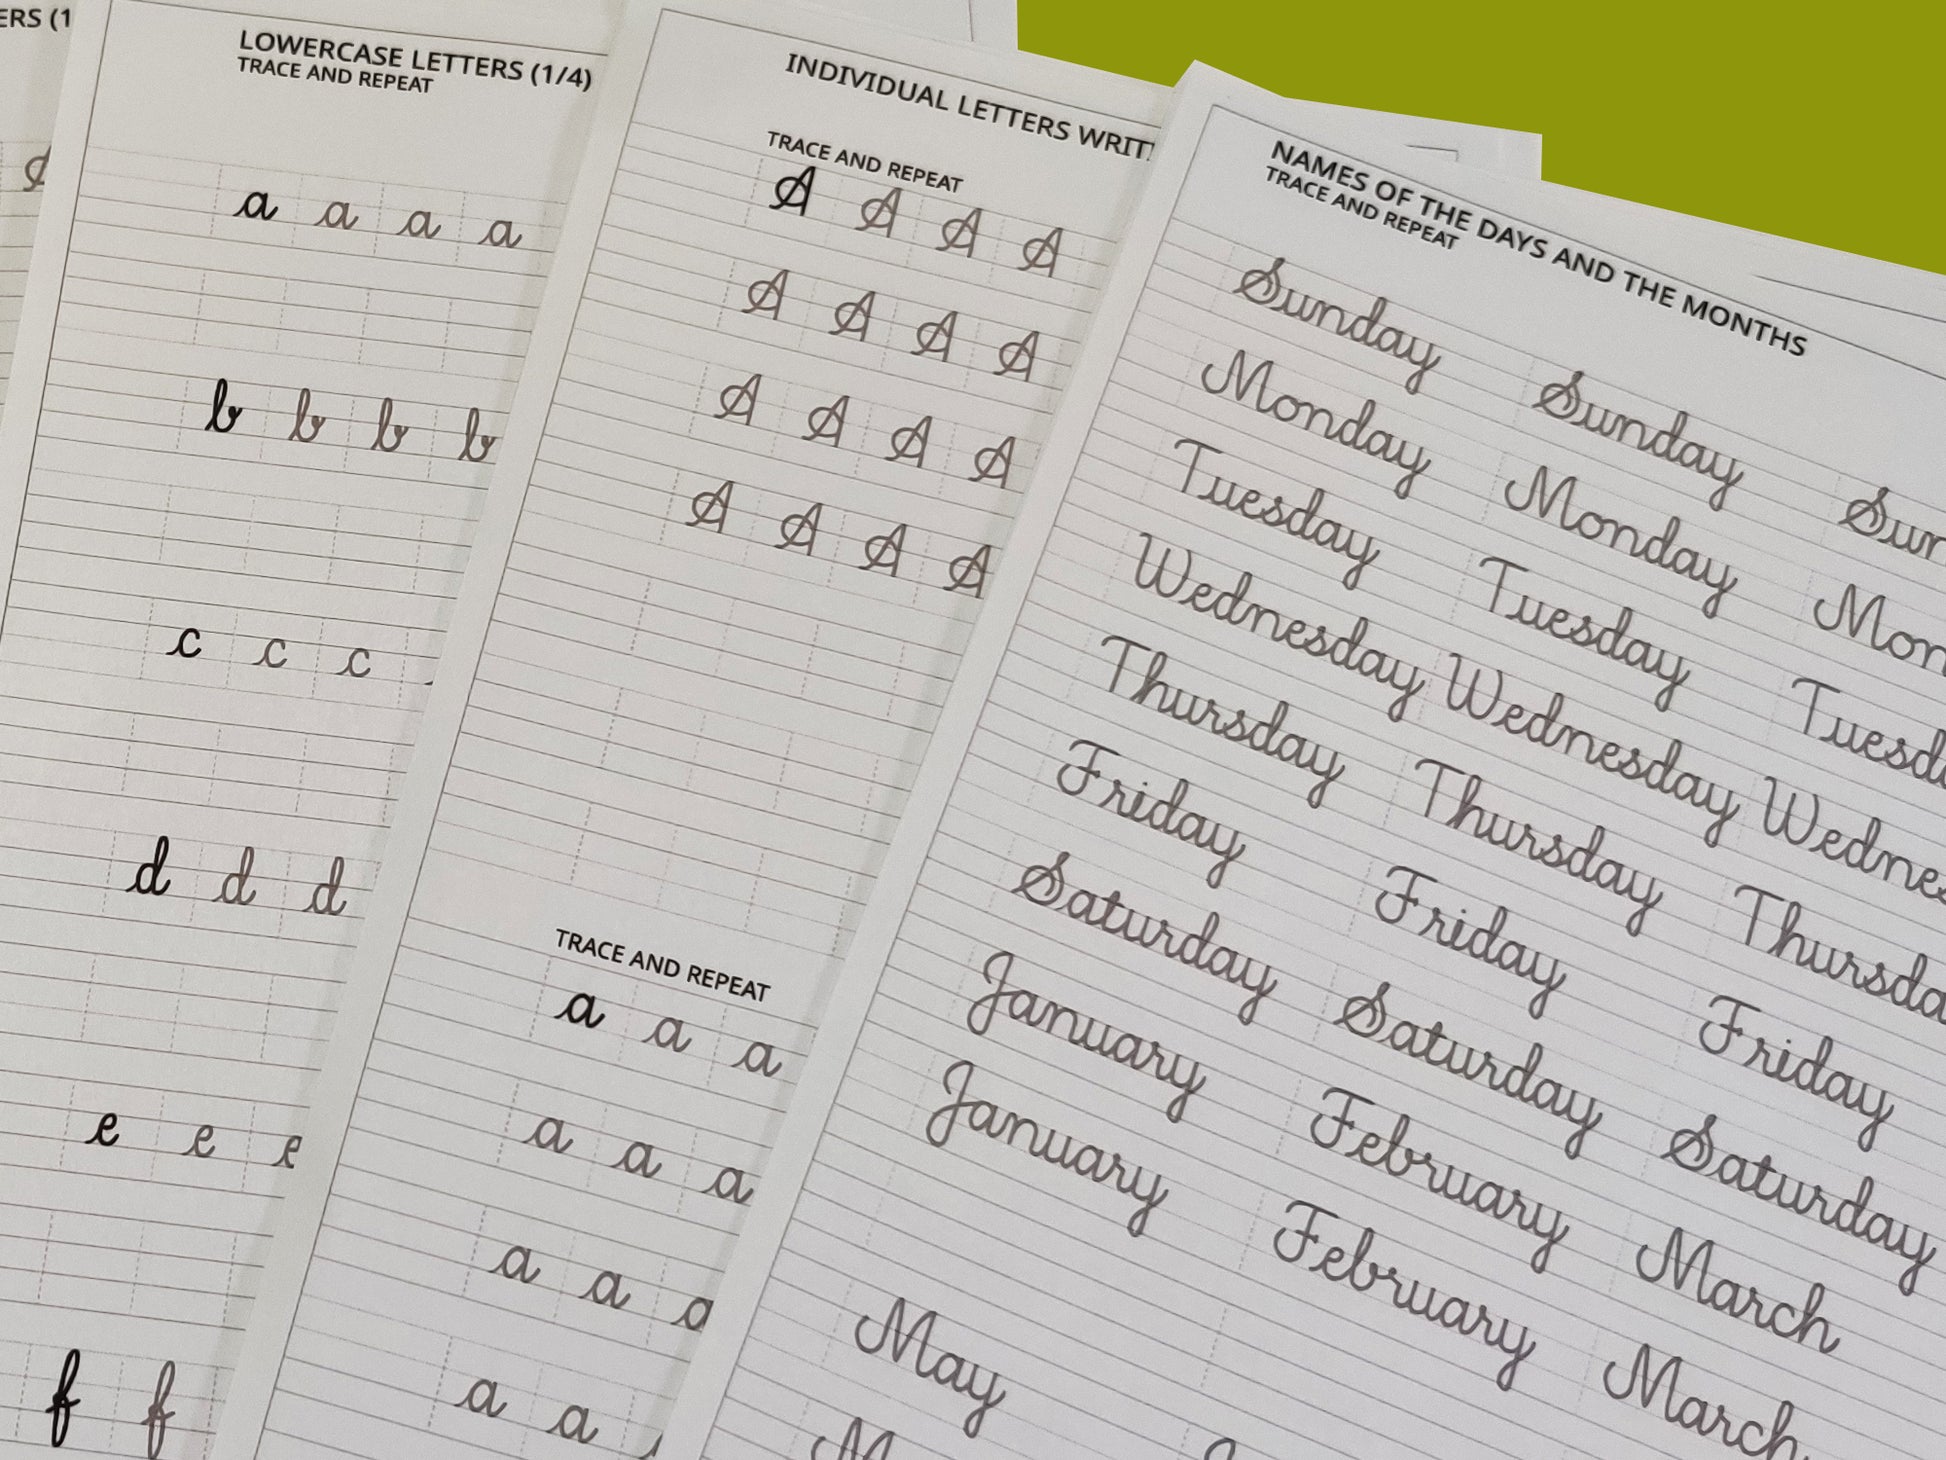 ERS (1
A
LOWERCASE LETTERS (1/4)
TRACE AND REPEAT
a a a a
b b b b
c c c
d d d
e e e
f f
INDIVIDUAL LETTERS WRIT
TRACE AND REPEAT
A A A A
A A A A
A A A A
A A A A
TRACE AND REPEAT
a a a
a a a
a a a
a a
NAMES OF THE DAYS AND THE MONTHS
TRACE AND REPEAT
Sunday Sunday Sun
Monday Monday Mon
Tuesday Tuesday Tuesda
Wednesday Wednesday Wednes
Thursday Thursday Thursda
Friday Friday Friday
Saturday Saturday Saturday
January February March
January February March
May
M